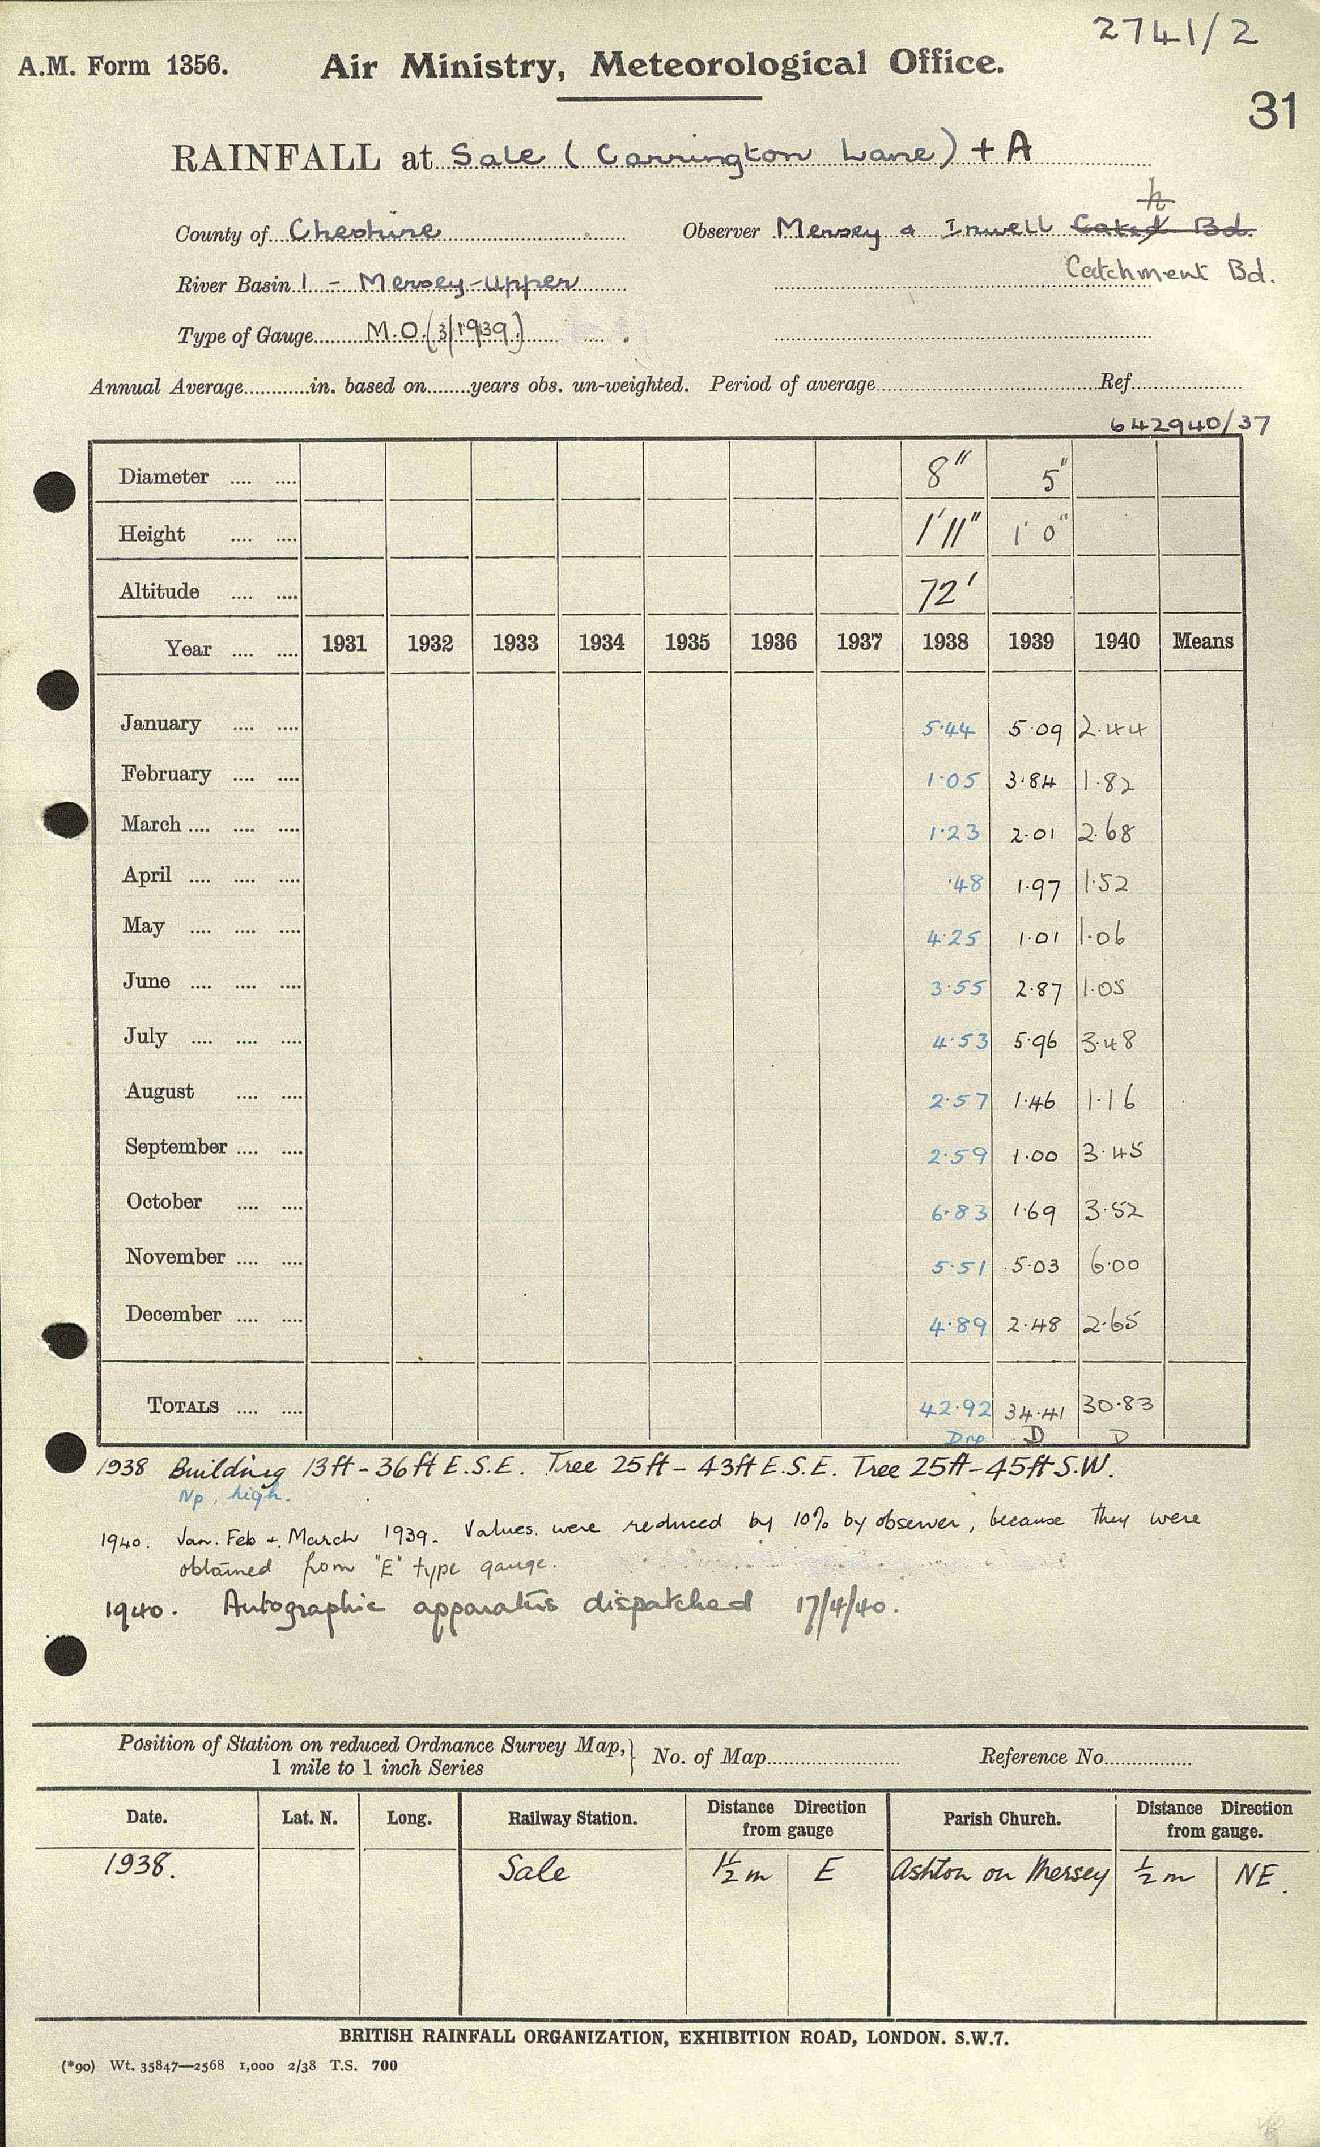 2741/2
A.M. Form 1356. Air Ministry, Meteorological Office.
31
RAINFALL at Sale (Carrington Lane) + A
h
County of Cheshire Observer Mersey & Irwell Catch Bd.
River Basin 1 - Mersey-Upper Catchment Bd.
Type of Gauge M.O. (3/1939)
Annual Average in. based on years obs. un-weighted. Period of average Ref
642940/37
Diameter .... .... 8" 5"
Height .... .... 1'11" 1' 0"
Altitude .... .... 72'
Year .... .... 1931 1932 1933 1934 1935 1936 1937 1938 1939 1940 Means
January .... .... 5.44 5.09 2.44
February .... .... 1.05 3.84 1.82
March .... .... .... 1.23 2.01 2.68
April .... .... .... .48 1.97 1.52
May .... .... .... 4.25 1.01 1.06
June .... .... .... 3.55 2.87 1.05
July .... .... .... 4.53 5.96 3.48
August .... .... 2.57 1.46 1.16
September .... .... 2.59 1.00 3.45
October .... .... 6.83 1.69 3.52
November .... .... 5.51 5.03 6.00
December .... .... 4.89 2.48 2.65
TOTALS .... .... 42.92 34.41 30.83
Dnp D D
1938 Building 13ft - 36ft E.S.E. Tree 25ft - 43ft E.S.E. Tree 25ft - 45ft S.W.
Np. high.
1940. Jan. Feb + March 1939. Values were reduced by 10% by observer, because they were
obtained from "E" type gauge.
1940. Autographic apparatus dispatched 17/4/40.
Position of Station on reduced Ordnance Survey Map,} No. of Map Reference No.
1 mile to 1 inch Series
Date. Lat. N. Long. Railway Station. Distance from gauge Direction Parish Church. Distance from gauge. Direction
1938. Sale 1½ m E Ashton on Mersey ½ m NE.
BRITISH RAINFALL ORGANIZATION, EXHIBITION ROAD, LONDON. S.W.7.
(*90) Wt. 35847—2568 1,000 2/38 T.S. 700